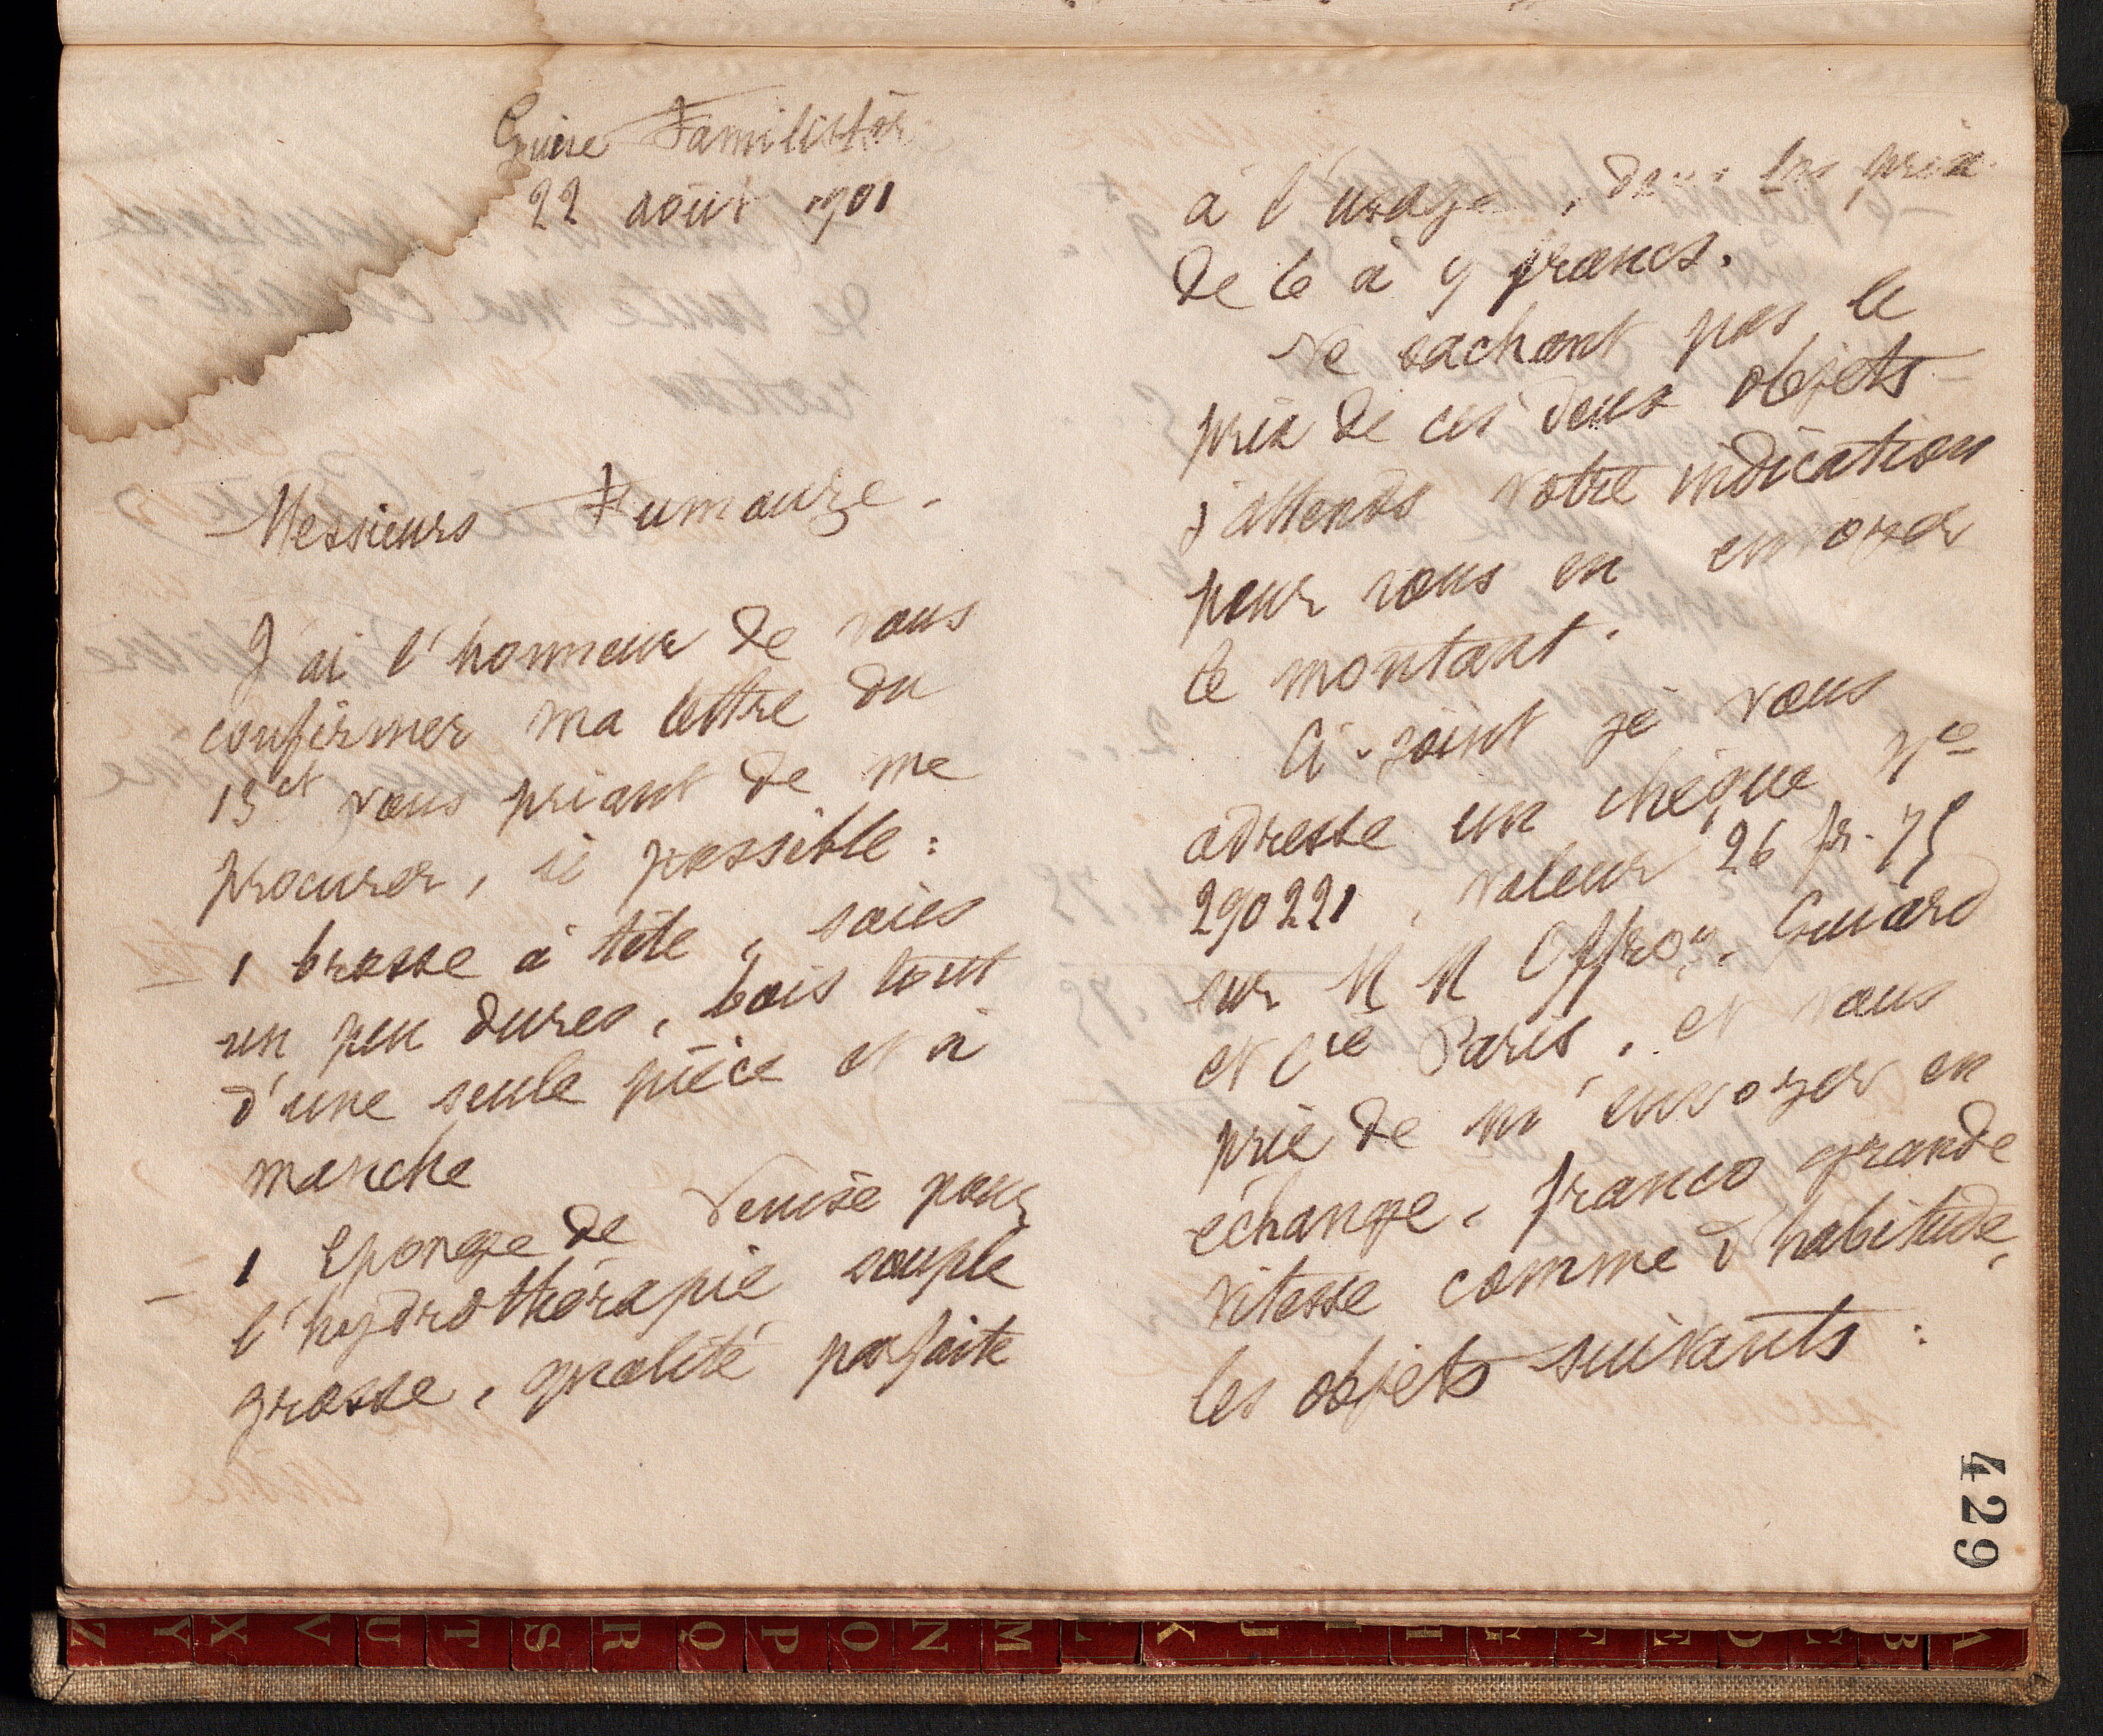 Guise Familistère
22 août 1901
Messieurs Fumouze.
J'ai l'honneur de vous
confirmer ma lettre du
15 ct vous priant de me
procurer, si possible :
— 1 brosse à tête, soies
un peu dures, bois tout
d'une seule pièce et à
manche
— 1 Eponge de Venise pour
l'hydrothérapie souple
grosse, qualité parfaite
à l'usage, dans les prix
de 6 à 9 francs.
Ne sachant pas le
prix de ces deux objets
j'attends votre indication
pour vous en envoyer
le montant.
Ci-joint je vous
adresse un chèque No
290221, valeur 26 fr. 75
sur M M Offroy, Guiard
et Cie Paris, et vous
prie de m'envoyer en
échange, franco grande
vitesse comme d'habitude,
les objets suivants :
429
Z Y X V U T S R Q P O N M L K J I H G F E D C B A